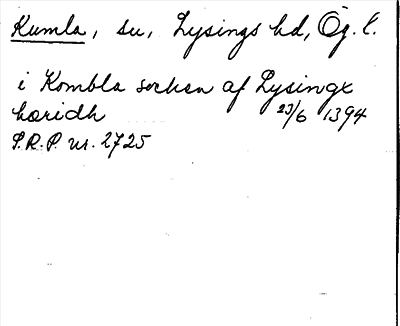 Kumla, sn, Lysings hd, Ög. l.
i Kombla sochen af Lysingx
hæridh 23/6 1394
S.R.P. nr. 2725